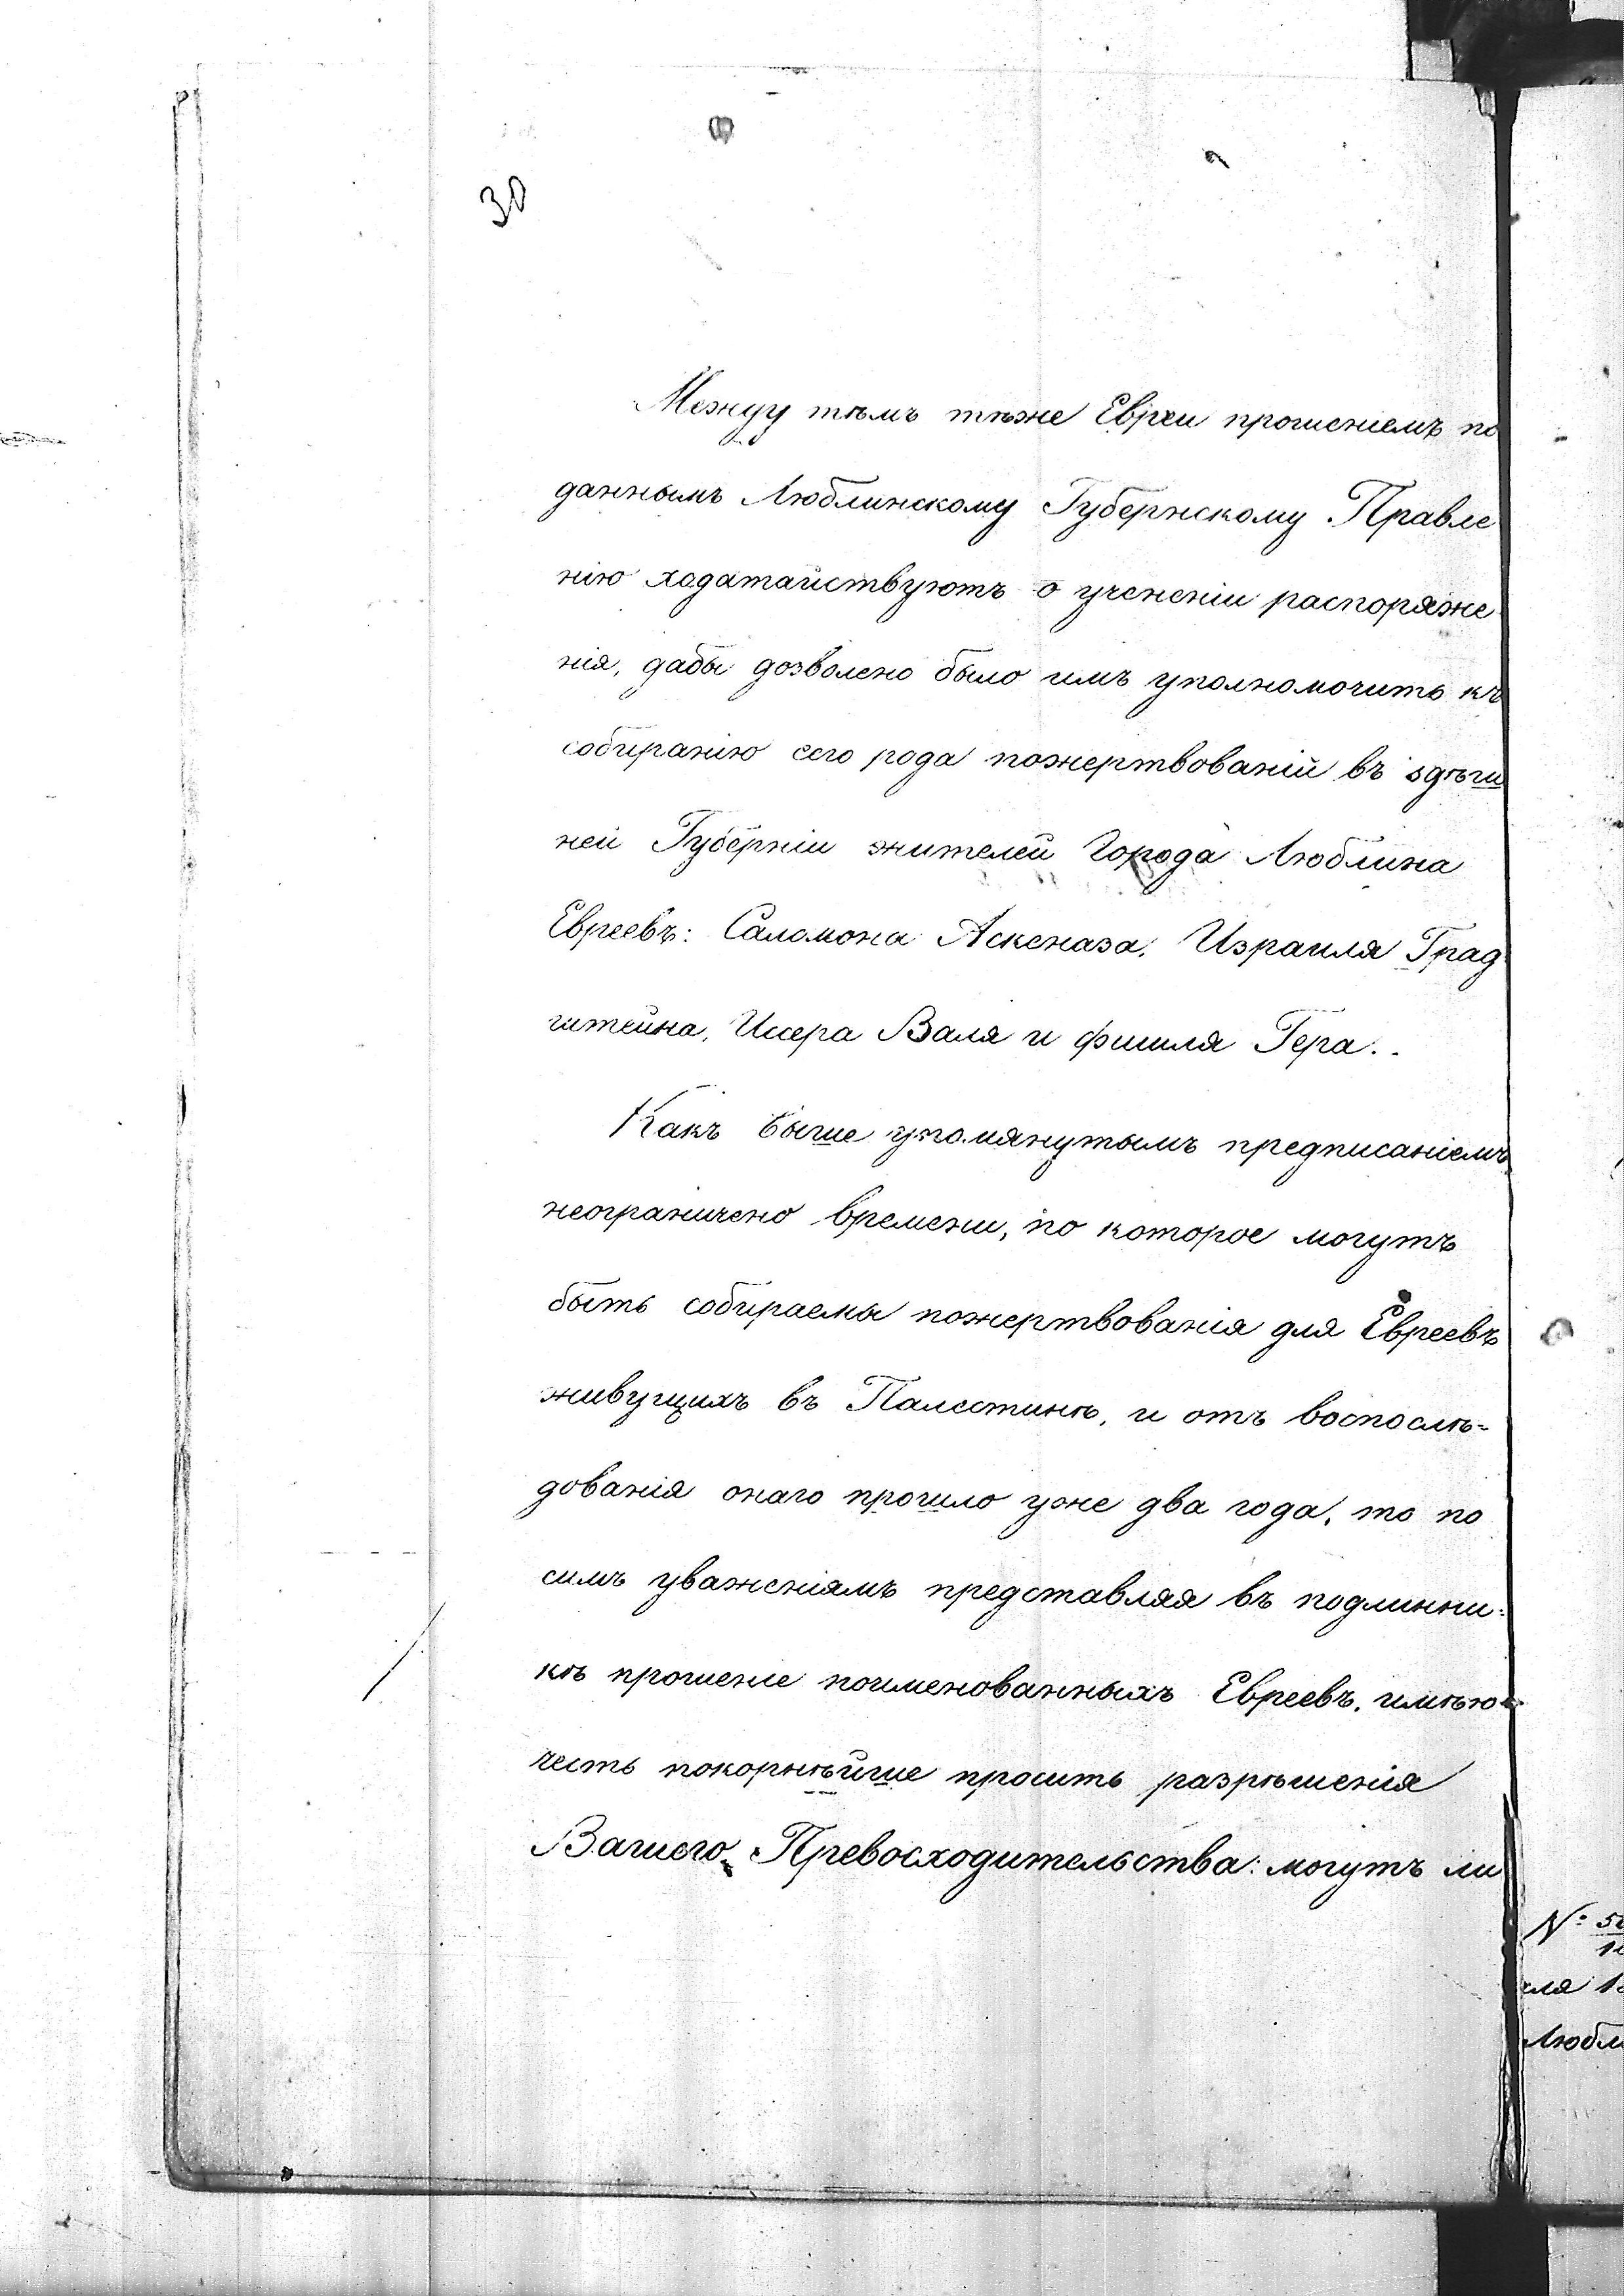 30
Между тѣмъ тѣже Евреи прошеніемъ по
даннымъ Люблинскому Губернскому Правле
нію ходатайствуютъ о учененіи распоряже
нія, дабы дозволено было имъ уполномочить къ
собиранію сего рода пожертвованій въ здѣш
ней Губерніи жителей Города Люблина
Евреевъ: Саломона Аскеназа, Израиля Град
штейна, Иссера Валя и Фишля Гера.
Какъ выше упомянутымъ предписаніемъ
неограничено времени, по которое могутъ
быть собираемы пожертвованія для Евреевъ
живущихъ въ Палестинѣ, и отъ воспослѣ=
дованія онаго прошло уже два года, то по
симъ уваженіямъ представляя въ подлинни=
кѣ прошеніе поименованныхъ Евреевъ, имѣю
честь покорнѣйше просить разрѣшенія
Вашего Превосходительства: могутъ ли
№
Любли